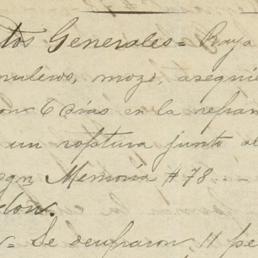 tos Generales = Raya
mulero, mozo, asequi
on 6 dias en la refran
un roptura junto al
gn Memoria # 78 --
lon.
= Se ocuparon 11 pe